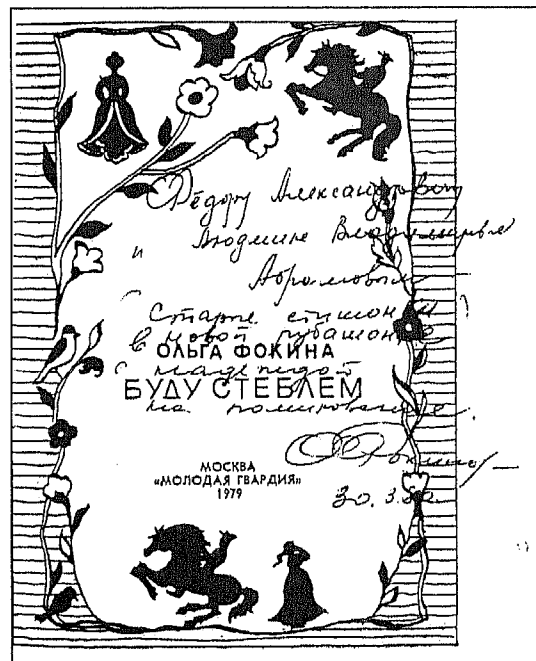 Фёдору Александровичу
и Людмиле Владимировне
Абрамовым —
Старые стишонки
в новой рубашонке
ОЛЬГА ФОКИНА
с надеждой
БУДУ СТЕБЛЕМ
на помилование.
ОФокина
МОСКВА
«МОЛОДАЯ ГВАРДИЯ»
1979
30.3.80